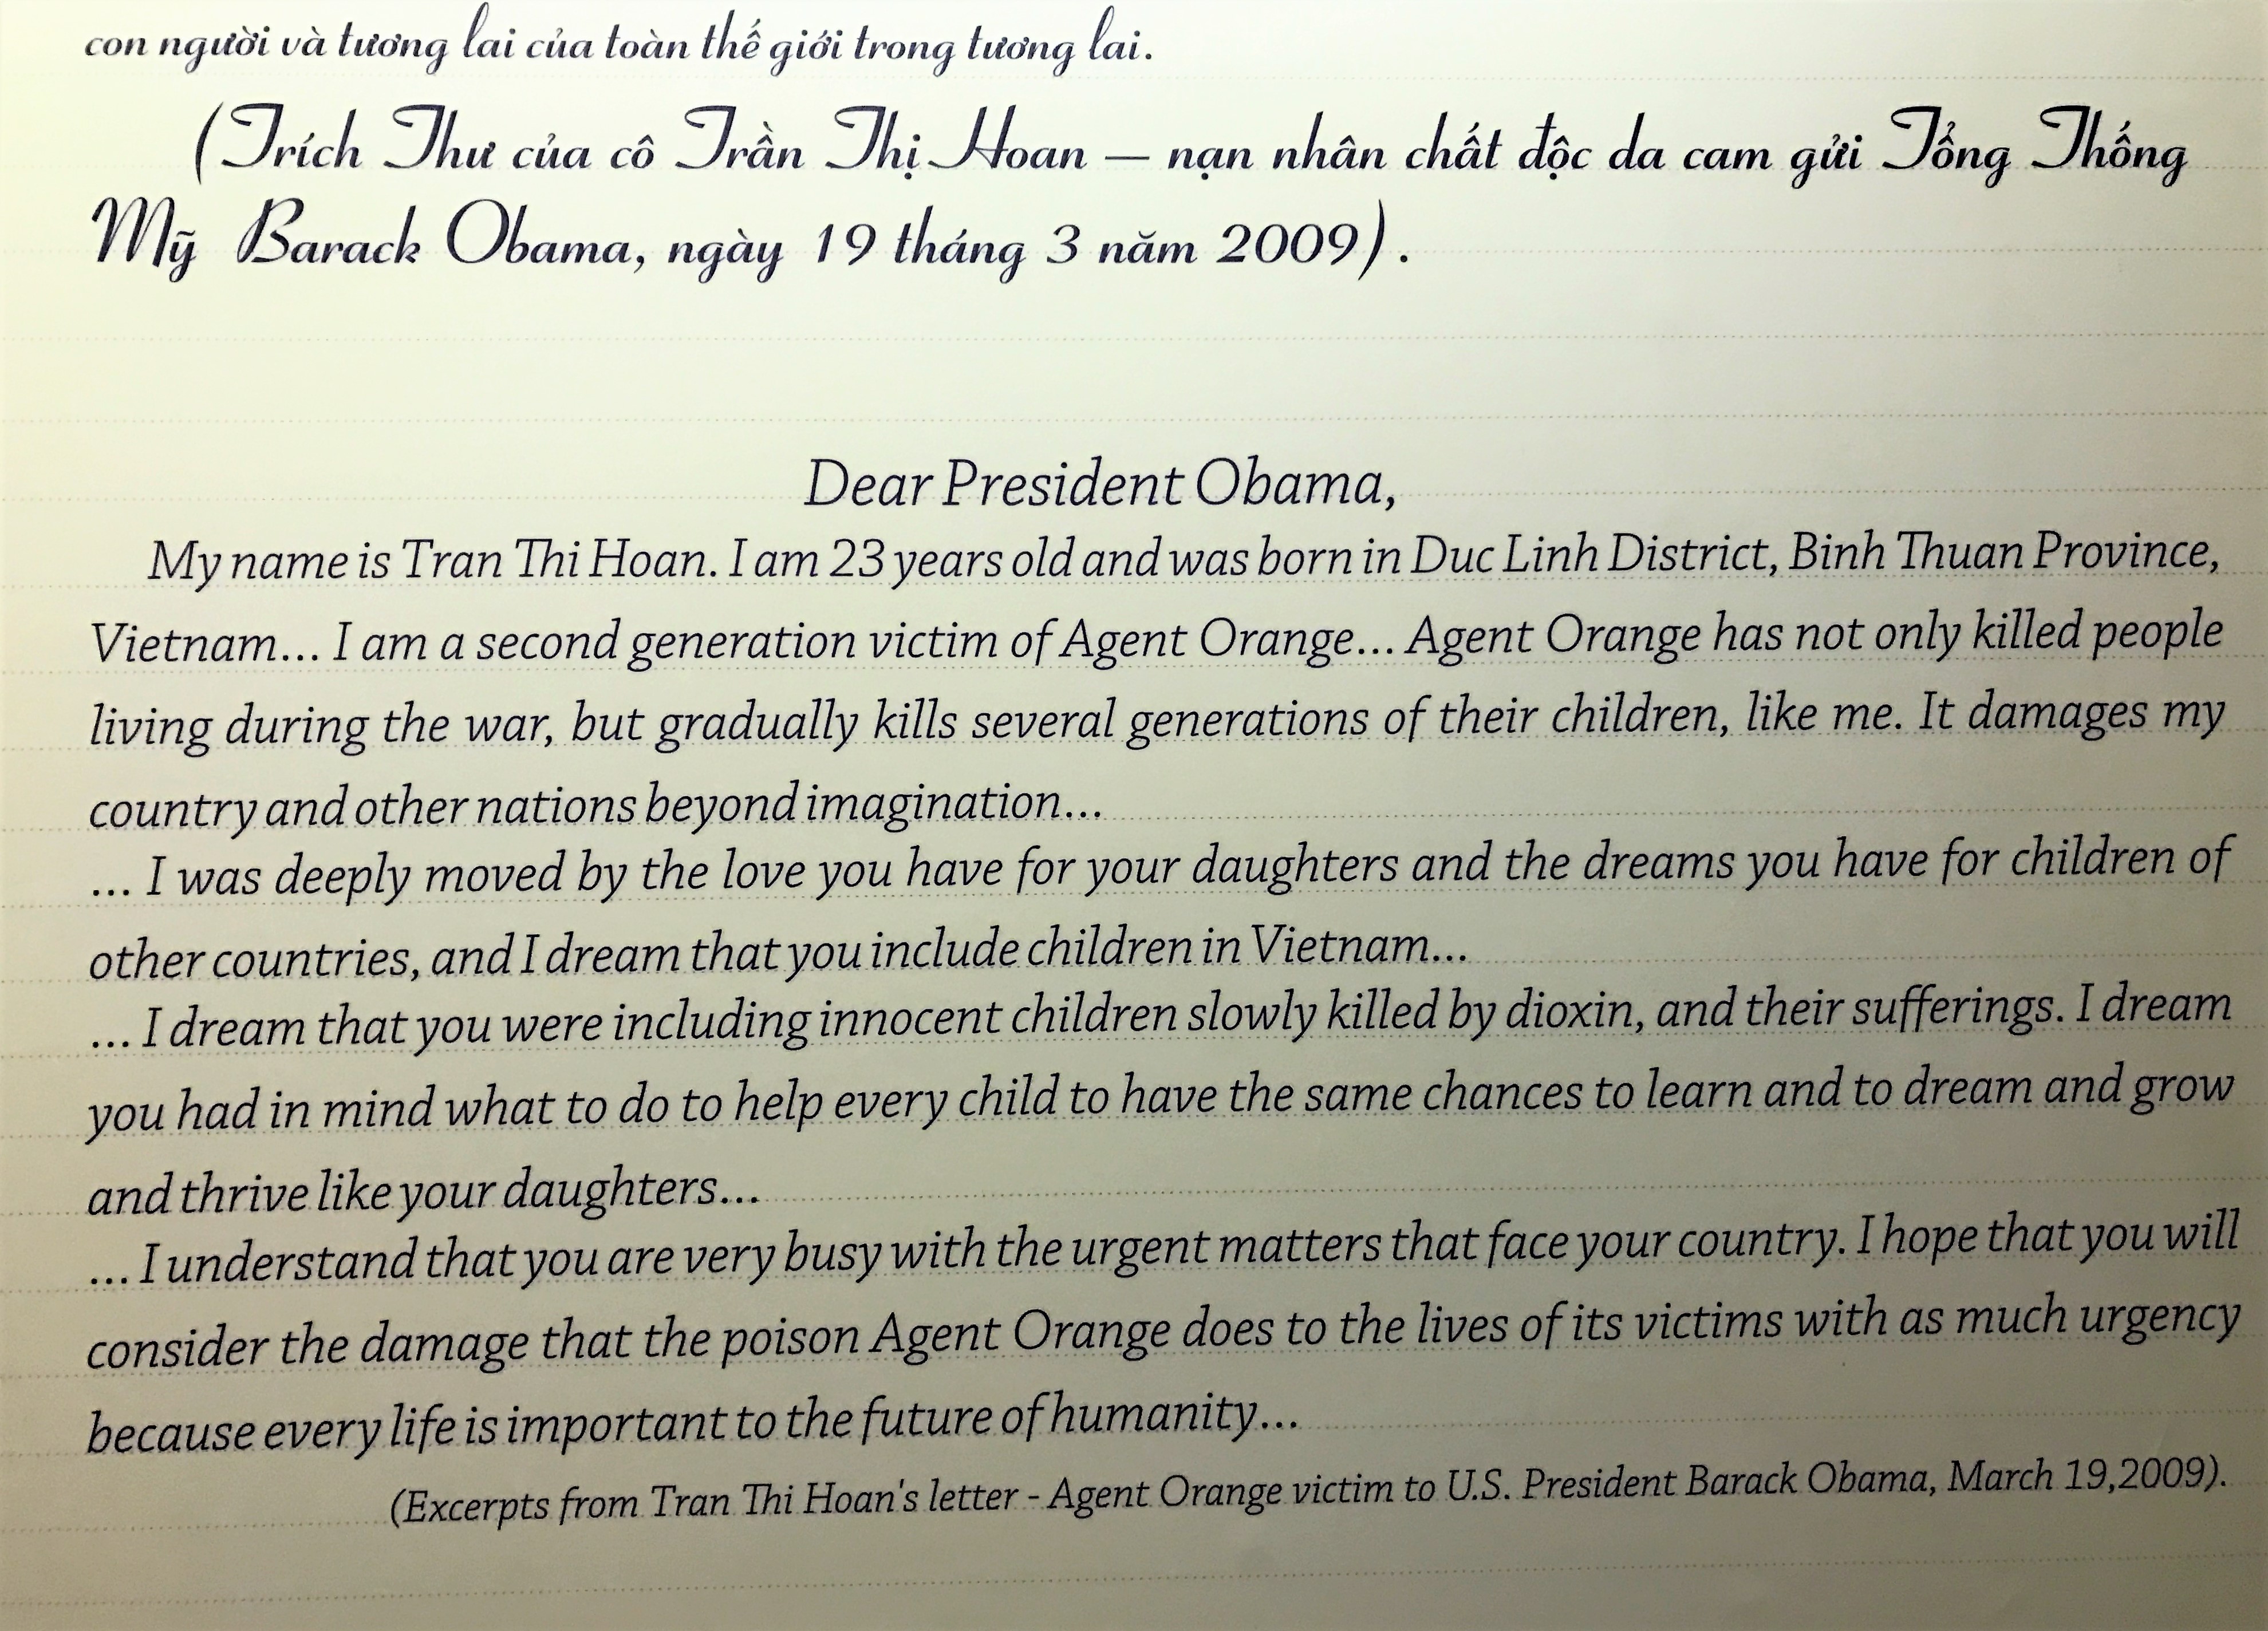 con người và tương lai của toàn thế giới trong tương lai.
(Trích Thư của cô Trần Thị Hoan – nạn nhân chất độc da cam gửi Tổng Thống
Mỹ Barack Obama, ngày 19 tháng 3 năm 2009).
Dear President Obama,
My name is Tran Thi Hoan. I am 23 years old and was born in Duc Linh District, Binh Thuan Province,
Vietnam... I am a second generation victim of Agent Orange... Agent Orange has not only killed people
living during the war, but gradually kills several generations of their children, like me. It damages my
country and other nations beyond imagination...
... I was deeply moved by the love you have for your daughters and the dreams you have for children of
other countries, and I dream that you include children in Vietnam...
... I dream that you were including innocent children slowly killed by dioxin, and their sufferings. I dream
you had in mind what to do to help every child to have the same chances to learn and to dream and grow
and thrive like your daughters...
... I understand that you are very busy with the urgent matters that face your country. I hope that you will
consider the damage that the poison Agent Orange does to the lives of its victims with as much urgency
because every life is important to the future of humanity...
(Excerpts from Tran Thi Hoan's letter - Agent Orange victim to U.S. President Barack Obama, March 19,2009).